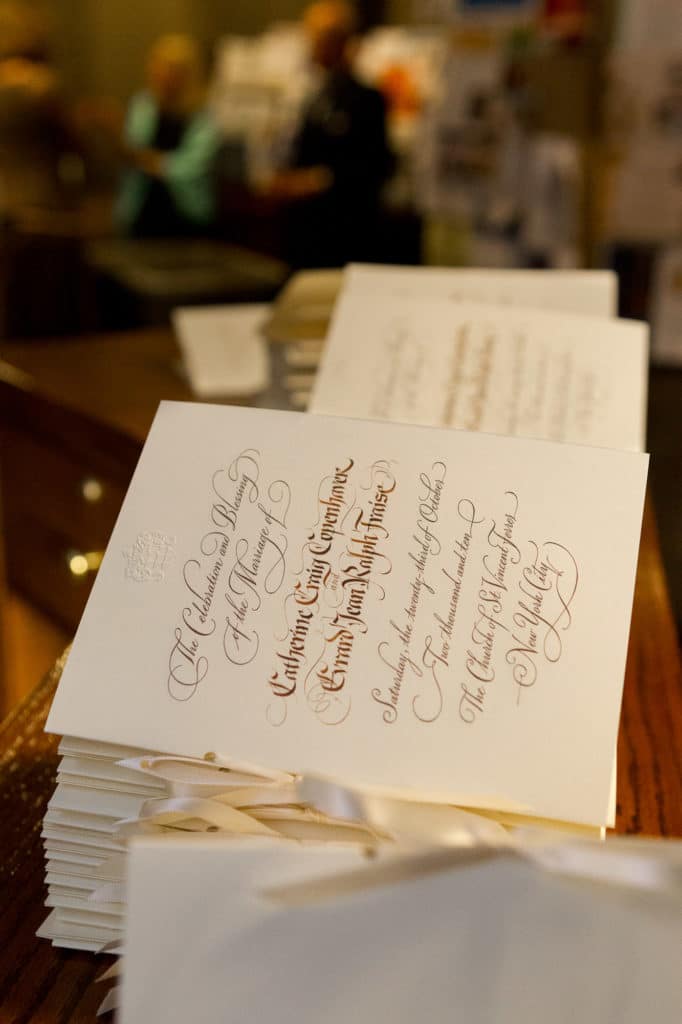 The Celebration and Blessing
of the Marriage of
Catherine Craig Copenhaver
and
Evrard Jean Ralph Fraisse
Saturday, the twenty-third of October
Two thousand and ten
The Church of St. Vincent Ferrer
New York City